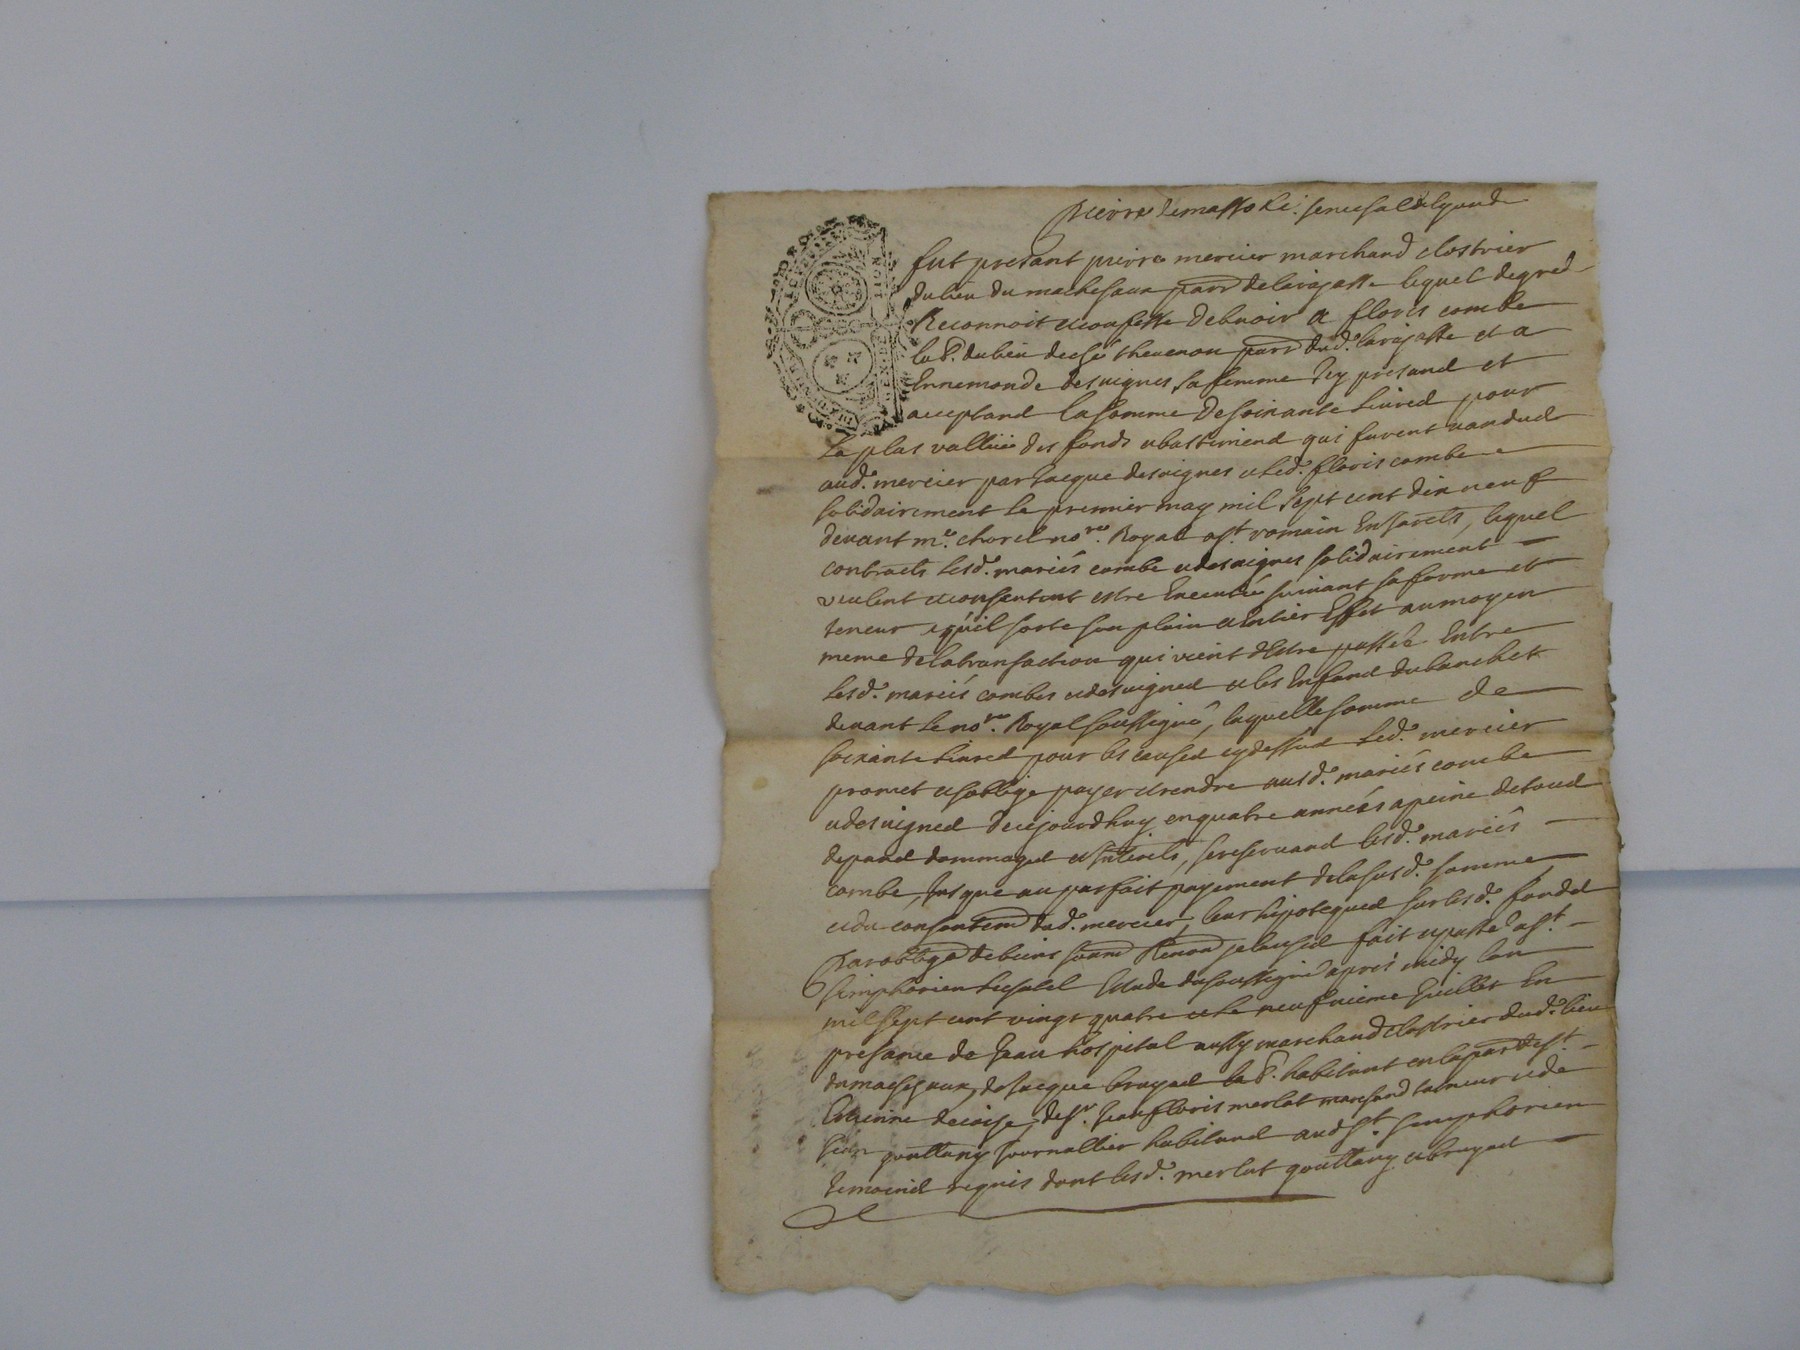 Pierre Demasso senesal de lyon
fut presant pierre mercier marchand clostrier
du lieu du machesaux parr de larajasse lequel de gred
Reconnoit et confesse debuoir a floris combe
lab. du lieu de chés thevenon parr dud. larajasse et a
Ennemonde desuignes sa femme Icy presand et
acceptand la somme de soixante liured pour
la plus vallüe des fonds et bastimend qui furent vandud
aud. mercier par Jacque desuignes et led. floris combe
solidairement le premier may mil sept cent dix neuf
devant me. chorel nore. Royal a st. romain En Jarets, lequel
contracts lesd. mariés combe et desuignes solidairement
veulent et consentent estre Executté suivant sa forme et
teneur et qu'il sorte son plain et Entier Effet au moyen
meme de la transaction qui vient d'Estre passée Entre
lesd. mariés combes et desuigned et les Enfand du banchet
devant le nore. Royal soussigné, laquelle somme de
soixante liured pour les caused cy dessud led. mercier
promet et s'obblige payer et rendre ausd. mariés combe
et desuigned de ce jourdhuy en quatre années a peine de toud
depand dommaged et Interets, se reservand lesd. mariés
combe, Jusque au parfait payement de la susd. somme
et du consentem dud. mercier, leur hipotequed sur lesd. fonded
Par obbliga de biens soum Renon et claused fait et passé a st.
simphorien le chatel Etude du soussigné apres midy l'an
mil sept cent vingt quatre et le neufvieme Juillet En
presance de Jean hospital aussy marchand clostrier dud. lieu
du machesaux, de Jacque bruyad lab. habitant en la par de st.
Etienne de coise, de sr. Jean floris merlat marchand taneur et de
gouttany journallier habitand aud st. simphorien
temoind requis dont lesd. merlat gouttany et bruyad